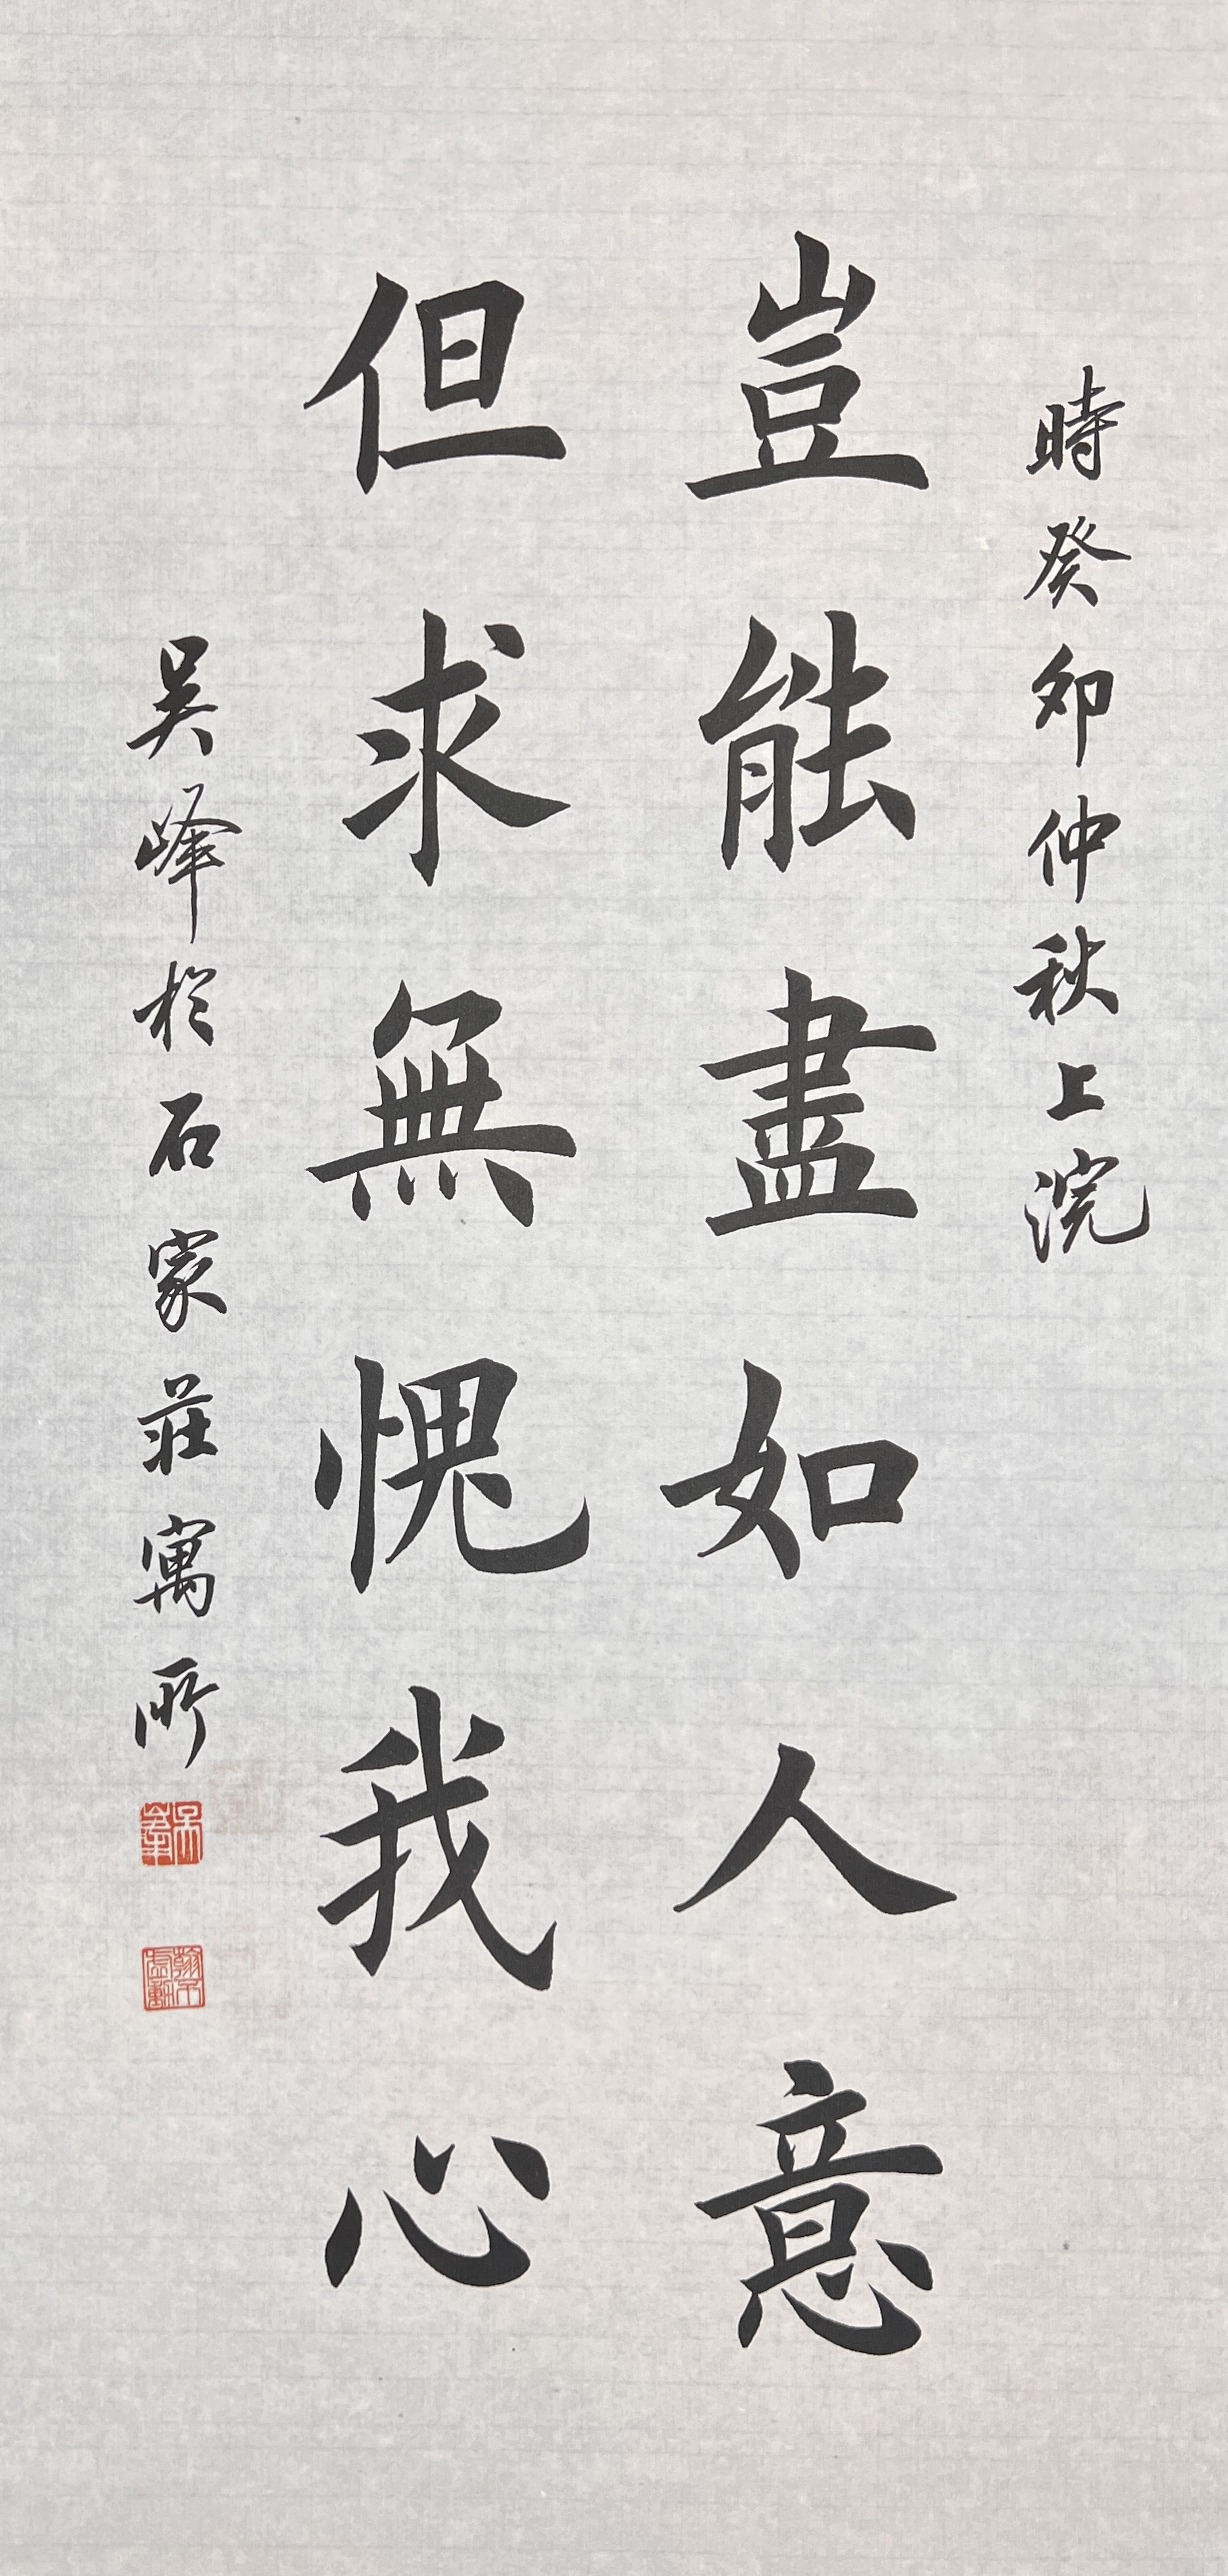 時癸卯仲秋上浣
豈能盡如人意
但求無愧我心
吳峰於石家莊寓所
吳峯